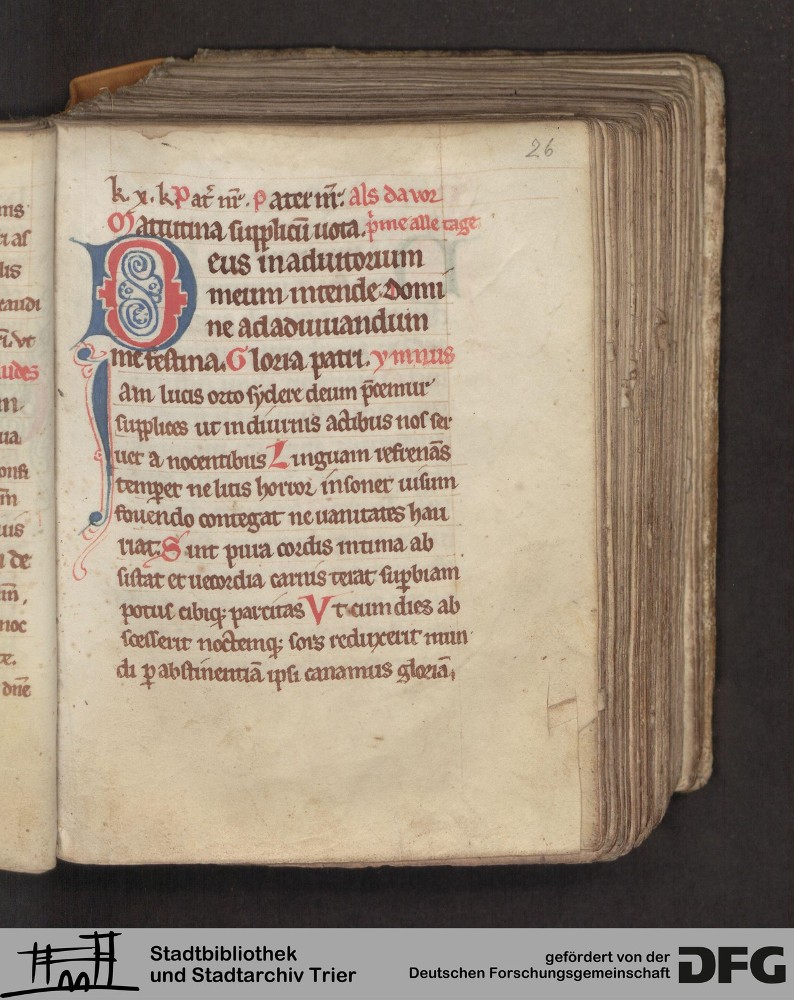 26
k. x. k Pat̄ nr̄. Pater nr̄. als da vor
Matutina supplicū uota. p̄me alle tage
Deus in adiutorium
meum intende Domi
ne ad adiuuandum
me festina. Gloria patri. ymnus
Iam lucis orto sydere deum p̄cemur
supplices ut in diurnis actibus nos ser
uet a nocentibus Linguam refrenās
temperet ne litis horror insonet uisum
fouendo contegat ne uanitates hau
riat. Sint pura cordis intima ab
sistat et uecordia carnis terat sup̄biam
potus cibiq; parcitas Vt cum dies ab
scesserit noctemq; sors reduxerit mun
di p̱ abstinentiā ipsi canamus gloriā,
Stadtbibliothek
und Stadtarchiv Trier
gefördert von der
Deutschen Forschungsgemeinschaft
DFG